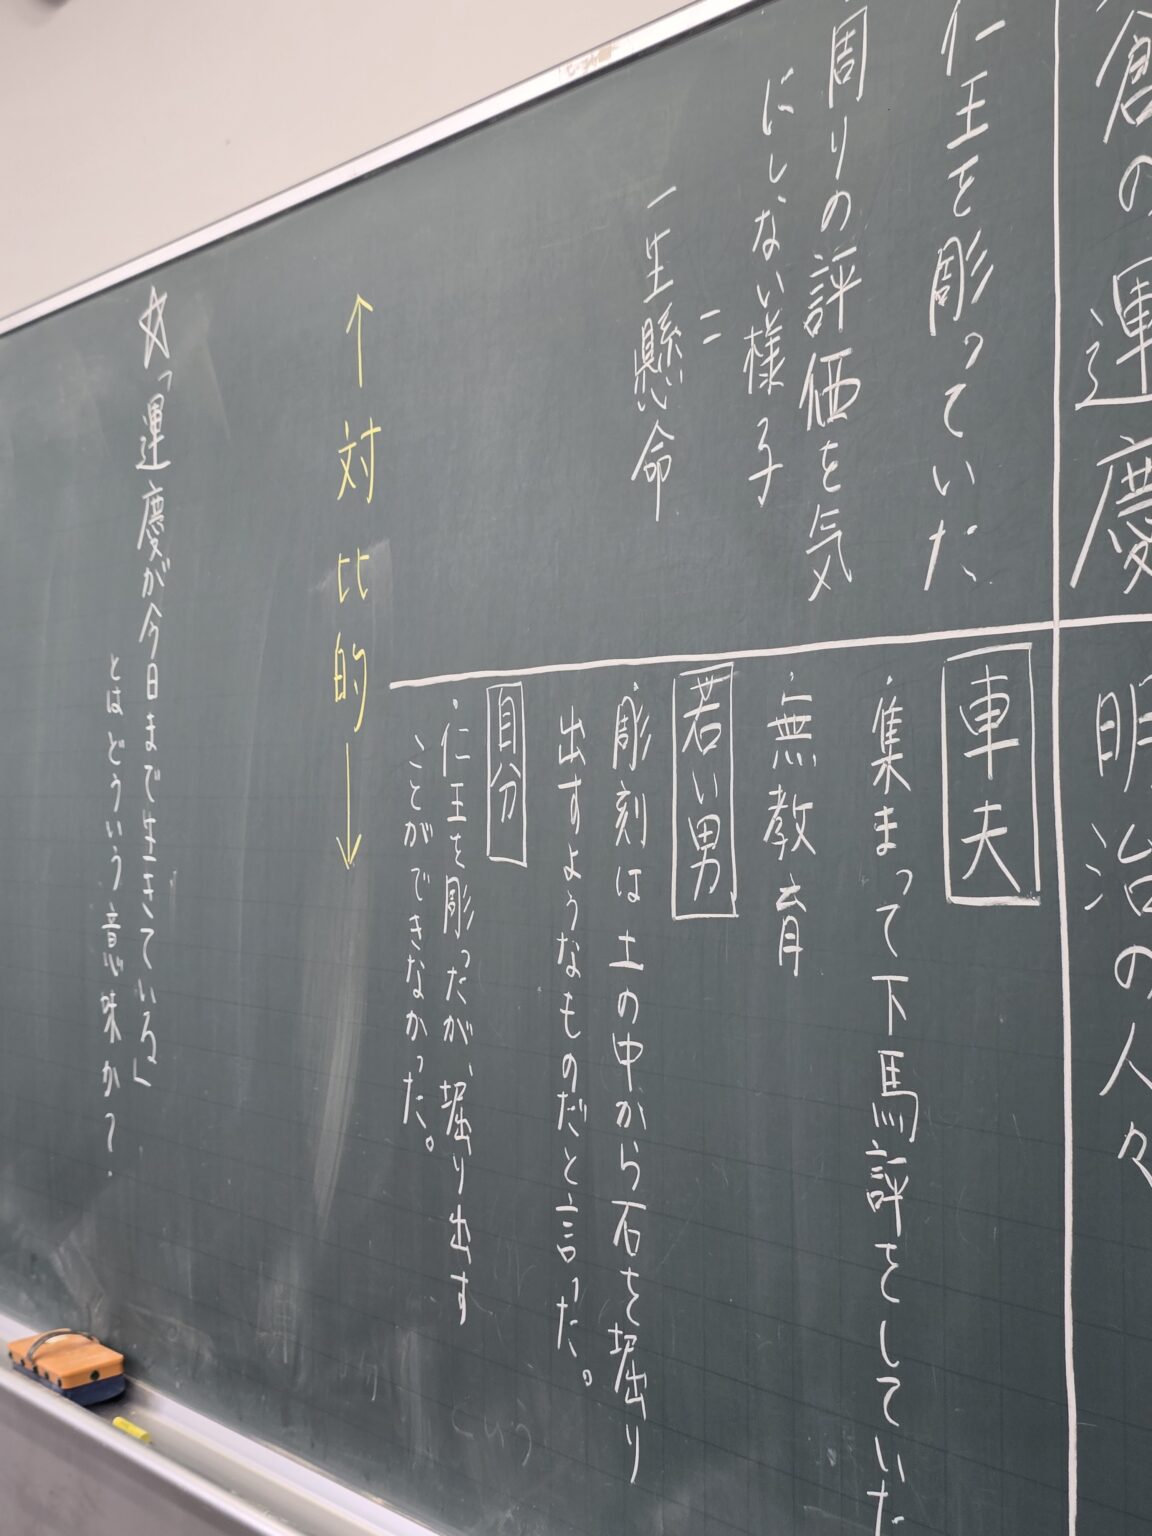 倉の運慶
仁王を彫っていた
周りの評価を気
にしない様子
=
一生懸命
明治の人々
車夫
・集まって下馬評をしていた
・無教育
若い男
・彫刻は土の中から石を堀り
出すようなものだと言った。
自分
・仁王を彫ったが、堀り出す
ことができなかった。
↑対比的↓
☆「運慶が今日まで生きている」
とはどういう意味か?